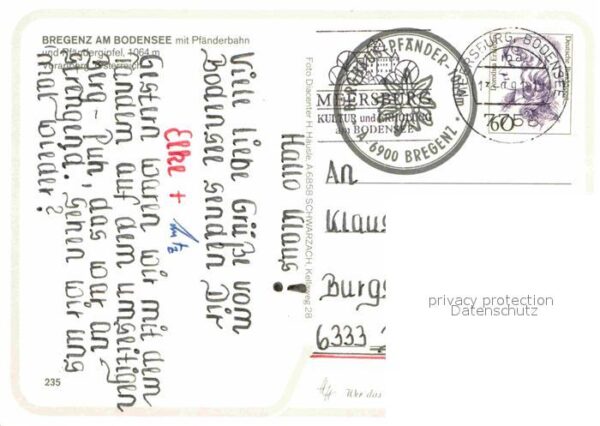 BREGENZ AM BODENSEE mit Pfänderbahn
und Pfändergipfel, 1064 m
Vorarlberg, Österreich
Hallo Klaus!
Viele liebe Grüße vom
Bodensee senden Dir
Elke +
Gestern waren wir mit dem
auf dem umseitigen
Berg - Puh, das war an
strengend. Gehen wir uns
mal wieder?
Foto Diacenter H. Häusle A-6858 SCHWARZACH, Kellaweg 28
MEERSBURG
KULTUR und ERHOLUNG
am BODENSEE
PFÄNDER, 1064m
A-6900 BREGENZ
MEERSBURG, BODENSEE
7758
60
An
Klaus
Burgs
6333
privacy protection
Datenschutz
235
Wer das